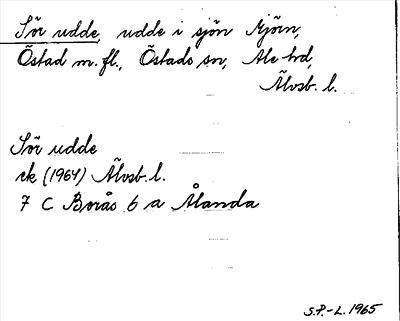 Sör udde, udde i sjön Mjörn,
Östad m.fl., Östads sn, Ale hd,
Älvsb. l.
Sör udde
ek (1964) Älvsb. l.
7 C Borås 6 a Ålanda
S.P.-L. 1965